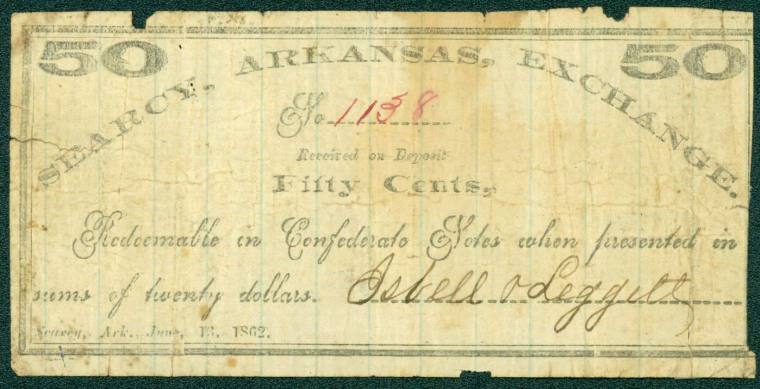 50 50
SEARCY, ARKANSAS, EXCHANGE.
No 1138
Received on Deposit
Fifty Cents,
Redeemable in Confederate Notes when presented in
sums of twenty dollars. Isbell & Leggett
Searcy, Ark. June, 16, 1862.